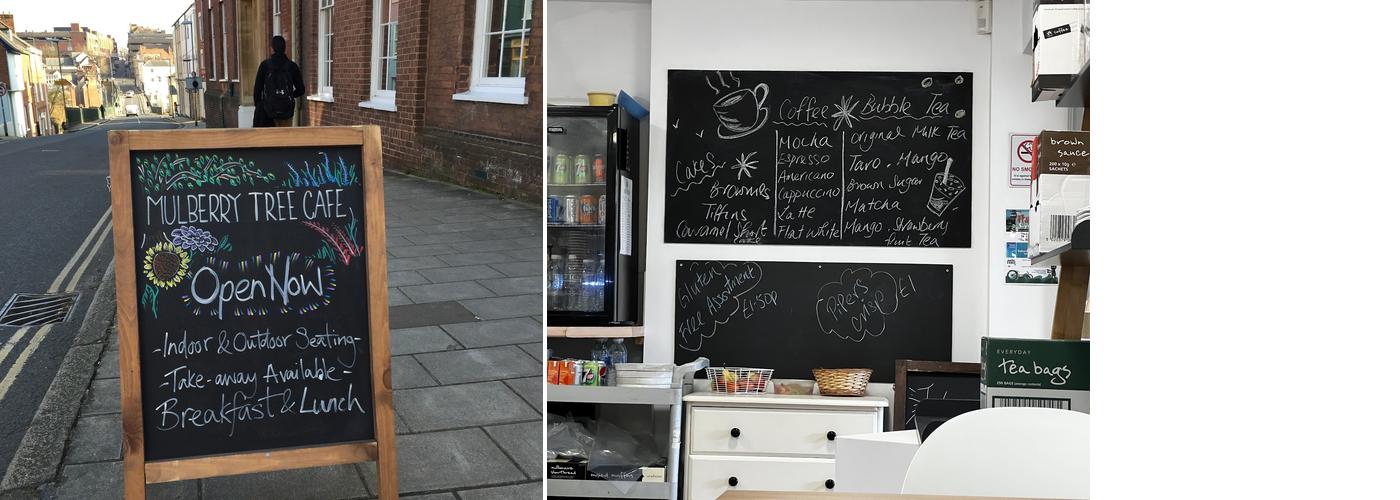 MULBERRY TREE CAFE
Open Now
-Indoor & Outdoor Seating-
-Take-away Available-
Breakfast & Lunch
Coffee
Mocha
Espresso
Americano
Cappuccino
Latte
Flat White
Bubble Tea
original Milk Tea
Taro . Mango
Brown Sugar
Matcha
Mango . Strawberry
fruit Tea
Cakes
Brownies
Tiffins
Caramel Short
Gluten
Free Assortment
£1:50p
Pipers
Crisp £1
coffee
NO SMO
brown
sauce
200 x 10g
SACHETS
EVERYDAY
tea bags
mixed muffins